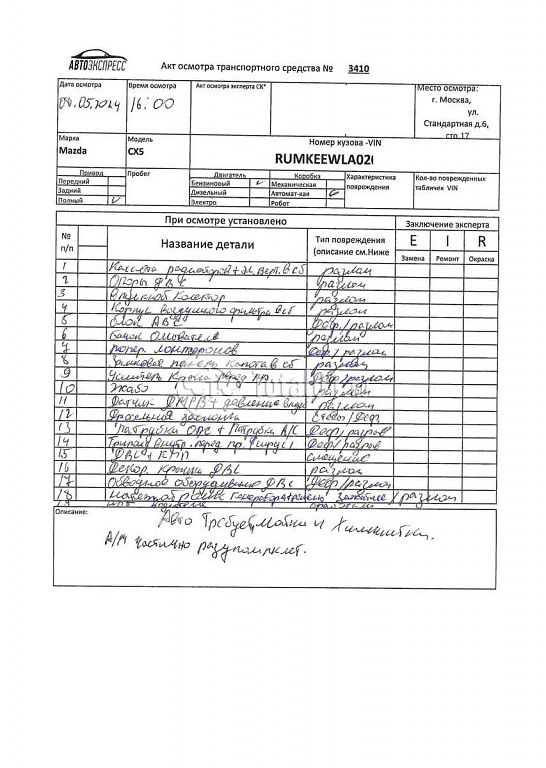 АВТОЭКСПРЕСС
Акт осмотра транспортного средства № 3410
Дата осмотра Время осмотра Акт осмотра эксперта СК* Место осмотра:
.05.2024 16:00 г. Москва,
ул.
Стандартная д.6,
стр.17
Марка Модель Номер кузова -VIN
Mazda CX5 RUMKEEWLA02
Привод Пробег Двигатель Коробка Характеристика Кол-во поврежденных
Передний Бензиновый ✓ Механическая повреждения табличек VIN
Задний Дизельный Автомат-кая ✓
Полный ✓ Электро Робот
При осмотре установлено Заключение эксперта
№ Название детали Тип повреждения E I R
п/п (описание см.Ниже Замена Ремонт Окраска
1 радиаторов + в сб разлом
2 Опоры ДВС разлом
3 Впускной Колектор разлом
4 Корпус воздушного фильтра в сб разлом
5 Блок АВС Деф/разлом
6 Бачок Омывателя разлом
7 лонжеронов Деф/разлом
8 панель Капота в сб разлом
9 Усилитель Крыла перед пр Деф/разлом
10 разлом
11 Датчик ДМРВ + давления разлом
12 Дросельная заслонка /Деф
13 Патрубки + Патрубки А/С Деф/разрыв
14 внутр. перед пр. Деф/разрыв
15 ДВС + КПП смещение
16 Декор. крышка ДВС разлом
17 оборудование ДВС Деф/разлом
18 /разлом
Описание: Авто Требует Мойки и Химчистки.
А/М частично разукомплект.